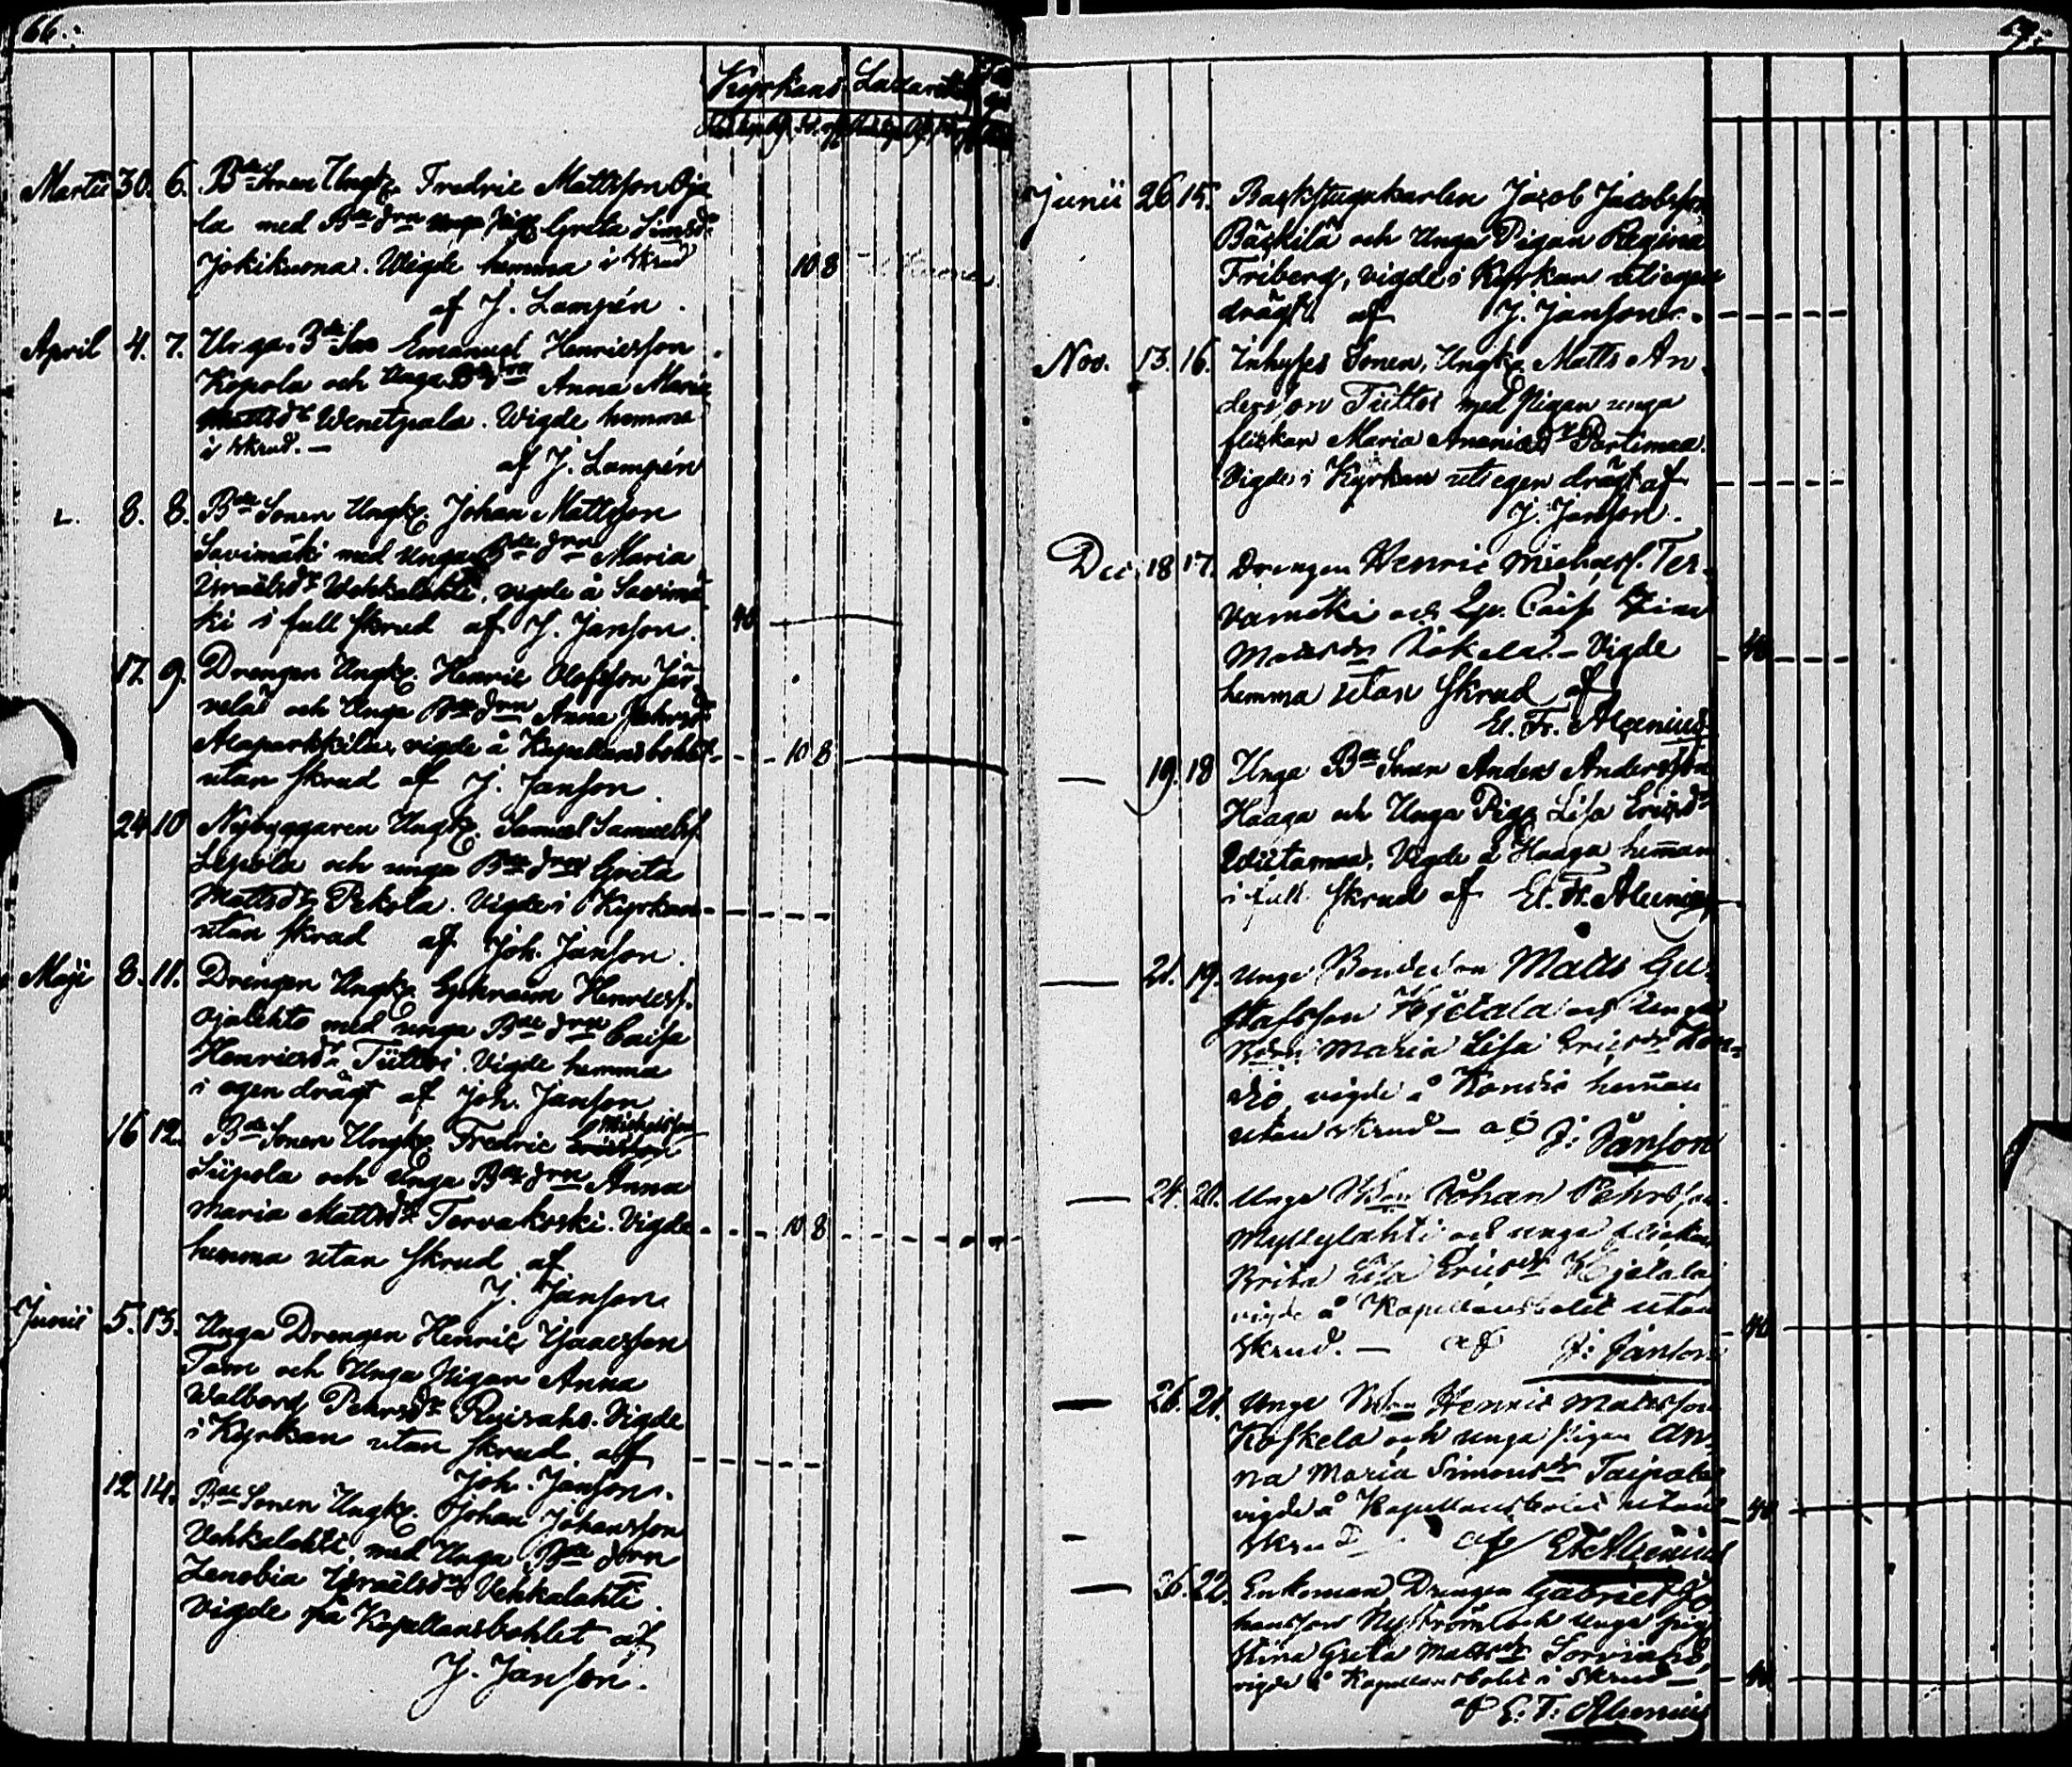 66.
Kyrkans Lazarett
Martii 30. 6. Bde Sonen Ungk. Fredric Mattsson Oja
la med Bde drn unga Greta Simsdr
Jokikuona. Wigde hemma i skrud 10 8
af J. Lampén.
April 4. 7. Unga Bde Son Emanuel Henricsson
Kopola och Unga Bde drn Anna Maria
Mattsdr Wenetpalo. Wigde hemma
i skrud. —
af J. Lampén
8. 8. Bde Sonen Ungk. Johan Mattsson
Savimäki med unga Bde drn Maria
Israelsdr Wehkalahti, vigde å Savimä
ki i full skrud af J. Janson. 40
17. 9. Drengen Ungk. Henric Olofsson Jär
velä och Unga Bde drn Anna Pehrsdr
Alaparkkila, vigde å Kapellansbohlet 10 8
utan skrud af J. Janson.
24 10 Nybyggaren Ungk. Samuel Samuelss.
Lepola och unga Bde drn Greta
Mattsdr Pekola. Vigde i Kyrkan
utan skrud af Joh. Janson.
Maji 8. 11. Drengen Ungk. Ephraim Henricss.
Ojalehto med unga Bde drn Caisa
Henricsdr Tüttos. Vigde hemma
i egen drägt af Joh. Janson
Michelsson
16 12. Bde Sonen Ungk. Fredric Ericsson
Siipola och Unga Bde drn Anna
Maria Mattsdr Tervakoski. Vigde 10 8
hemma utan skrud af
J. Janson
Junii 5. 13. Unga Drengen Henric Isaacsson
Tam och Unga Pigan Anna
Walborg Pehrsdr Ruisaho. Vigde
i Kyrkan utan skrud af
Joh. Janson.
12 14. Bde Sonen Ungk. Johan Johansson
Vehkalahti med Unga Bde dorn
Zenobia Israëlsdr Vehkalahti.
vigde på Kapellansbohlet af
J. Janson.
Junii 26 15. Backstugukarlen Jacob Jacobsson
Bäckilä och Unga Pigan Regina
Friberg, vigde i Kyrkan uti egen
drägt af J. Janson.
Nov. 13. 16. Inhyses Sonen, Ungk. Matts An
dersson Tüttos med Pigan unga
flickan Maria Ananiasdr Partimaa.
Vigde i Kyrkan uti egen drägt af
J. Janson.
Dec. 18 17. Drengen Henric Michelss. Ter
vamäki och Caisa Stina
Mattsdr Jokela. — Vigde 40
hemma utan skrud af
El. Fr. Alcenius
19. 18 Unga Bde Sonen Anders Andersson
Haaga och Unga Pig. Lisa Ericsdr
Wiitamaa, Vigde å Haaga heman
i full skrud af El. Fr. Alcenius
21. 19. Unge Bondeson Matts Gu
stafsson Hjetala och Unga
Maria Lisa Ericsdr Kan
dio vigde å Kandio heman
utan skrud — af J: Janson
24. 20. Unge Bdson Johan Pehrsson
Myllylahti och unga flickan
Brita Lisa Ericsdr Hjetala
vigde å Kapellansbolet utan
skrud. — af J: Janson 40
26. 21. Unge Bdson Henric Mattsson
Koskela och unga pigan An
na Maria Simonsdr Taipale
vigde å Kapellansbolet utan 40
skrud af E F Alcenius
26. 22. Enkoman Drengen Gabriel Jo
hansson Nyström och unga pig
Stina Greta Mattsdr Sorvisto
vigde å Kapellansbolet i skrud — 40
af E. F. Alcenius